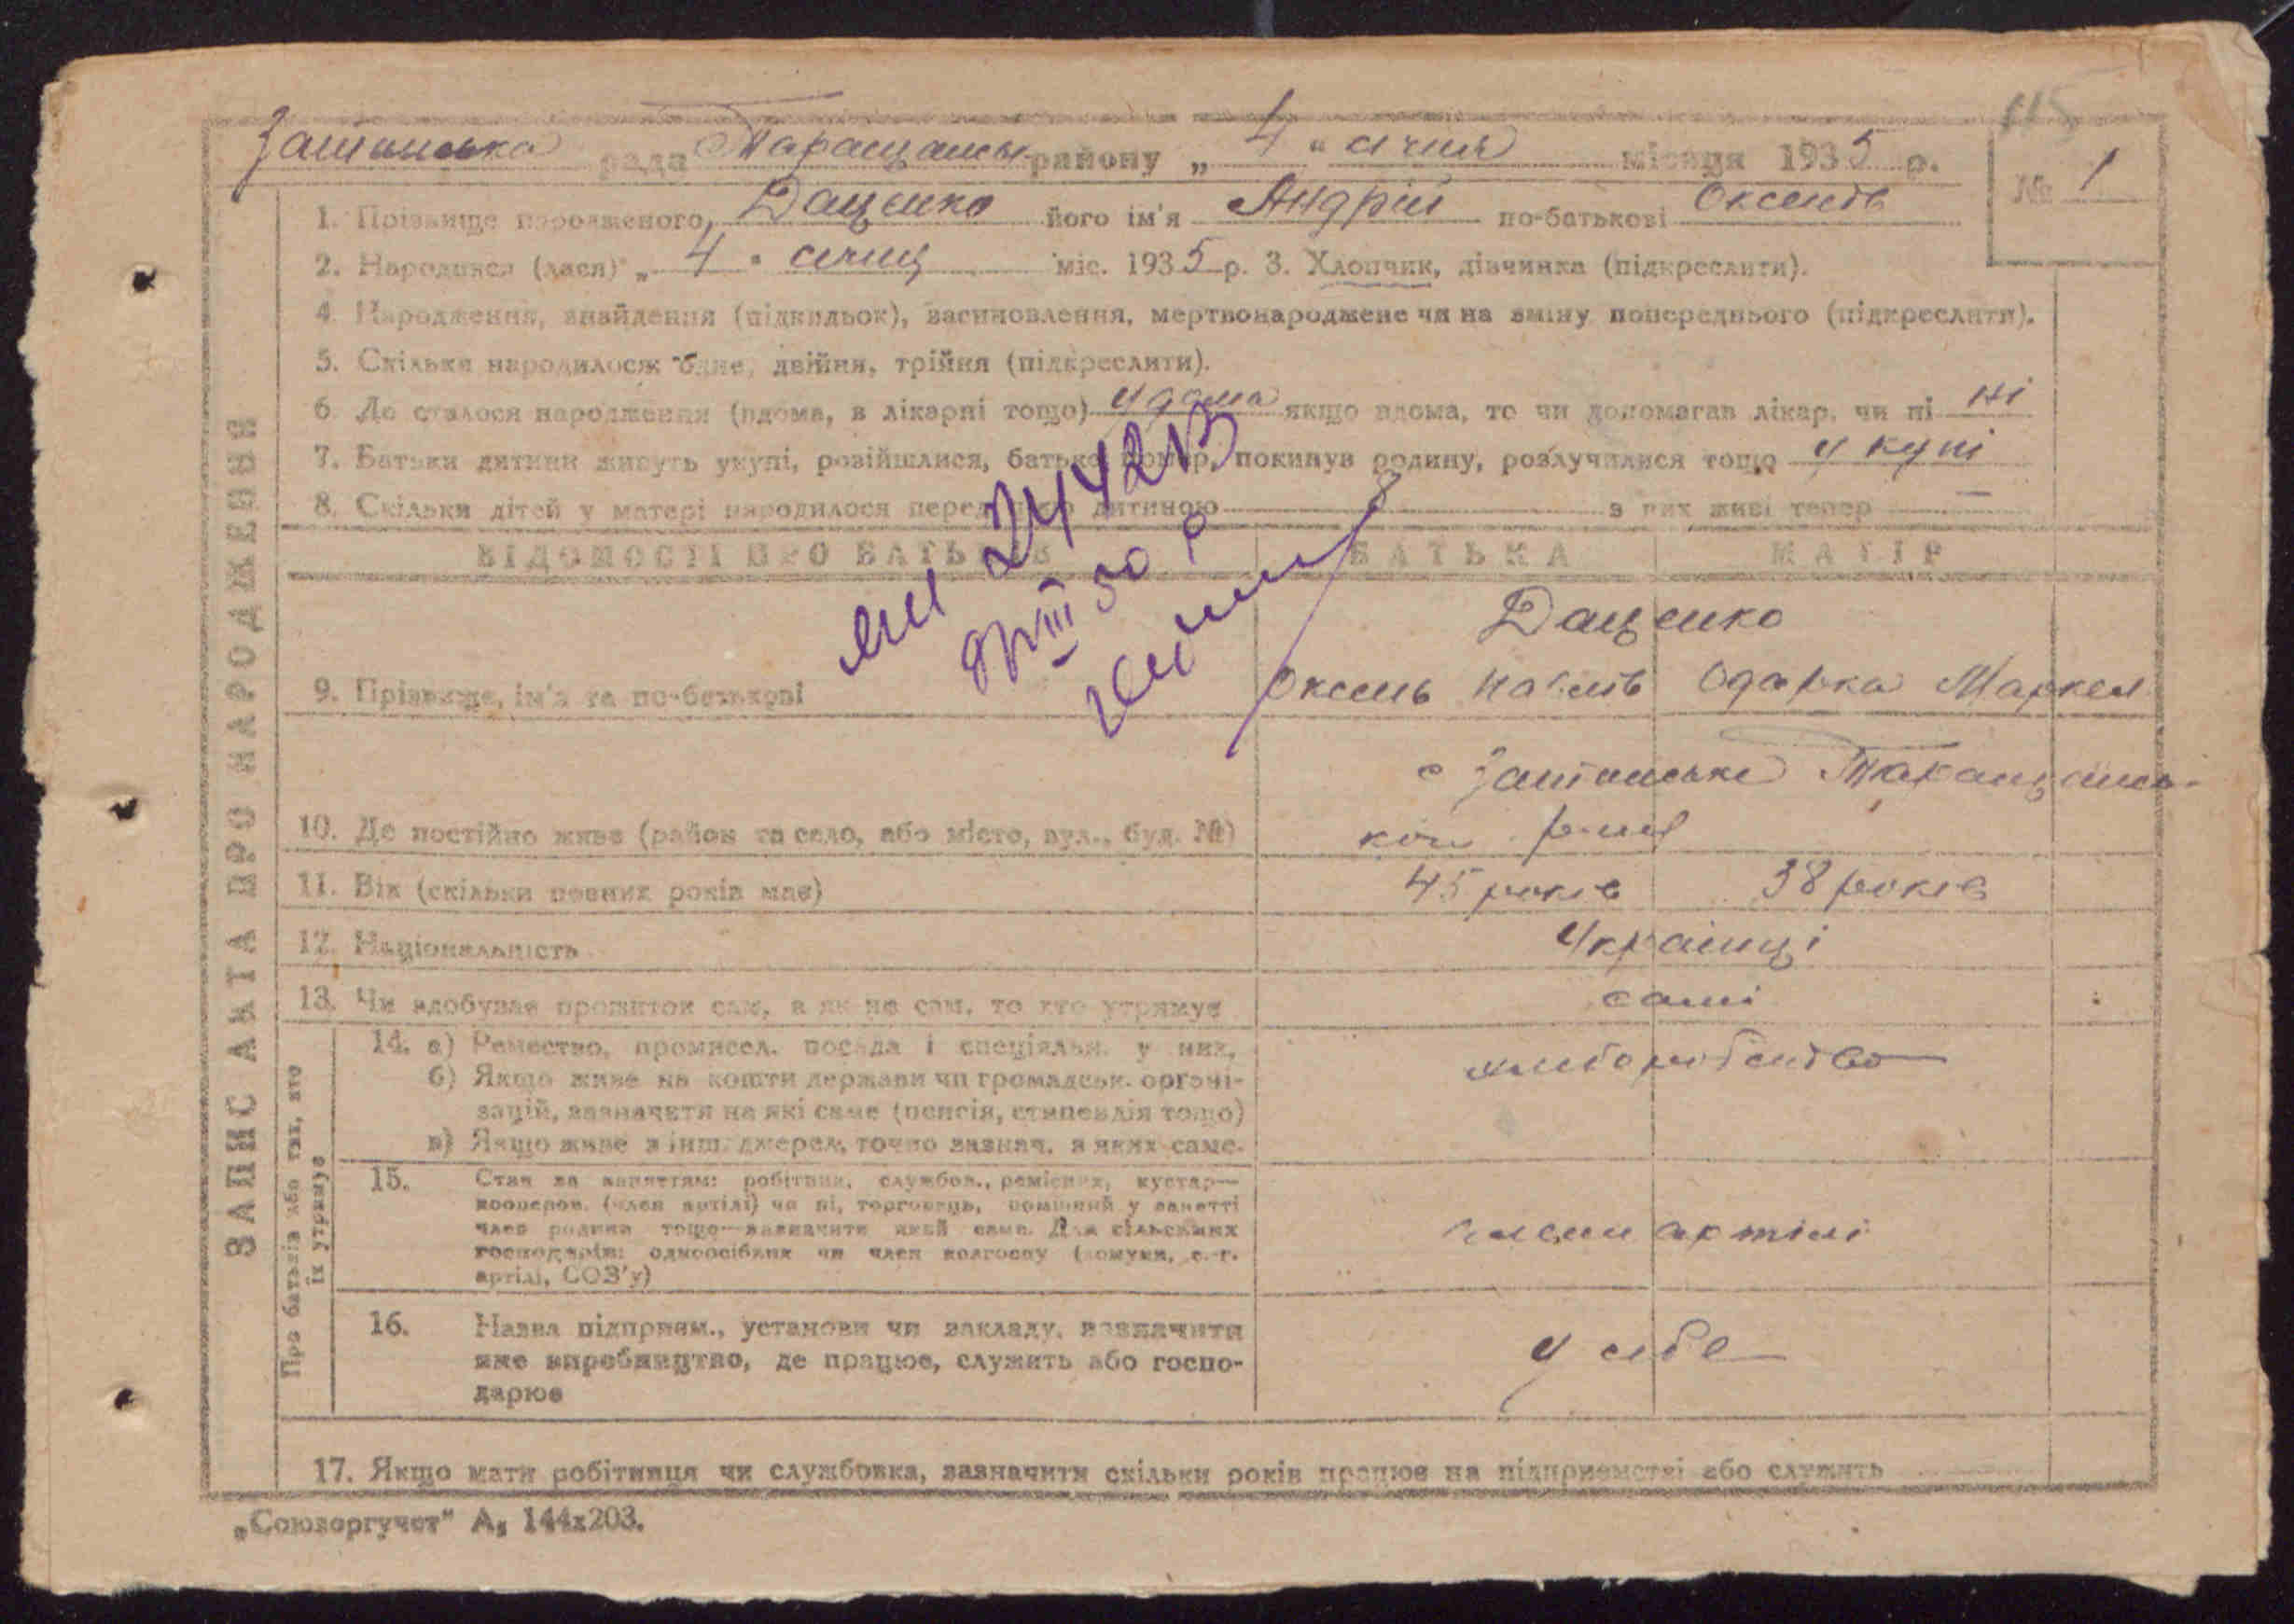 115
рада Таращансь району „ 4 “ січня місяця 1935 р.
№ 1
1. Прізвище народженого, Даценко його ім'я Андрій по-батькові Оксентв
2. Народився (лася) „ 4 " січня міс. 1935 р. 3. Хлопчик, дівчинка (підкреслити).
4. Народження, знайдення (підкидьок), засиновлення, мертвонароджене чи на зміну попереднього (підкреслити).
5. Скільки народилося: одне, двійня, трійня (підкреслити).
6. Де сталося народження (вдома, в лікарні тощо) у дома якщо вдома, то чи допомагав лікар, чи ні ні
7. Батьки дитини живуть укупі, розійшлися, батько помер, покинув родину, розлучилися тощо у купі
8. Скільки дітей у матері народилося перед цією дитиною — з них живі тепер —
244213
III 50 р
ВІДОМОСТІ ПРО БАТЬКІВ БАТЬКА МАТІР
Даценко
9. Прізвище, ім'я та по-батькові Оксень Павлів Одарка Маркел
с
10. Де постійно живе (район та село, або місто, вул., буд. №) кої р-ну
11. Вік (скільки повних років має) 45 років 38 років
12. Національність Українці
13. Чи здобуває прожиток сам, а як не сам, то хто утримує самі
14. а) Ремество, промисел, посада і спеціяльн. у них, хлиборобство
б) Якщо живе на кошти держави чи громадськ. органі-
зацій, зазначити на які саме (пенсія, стипендія тощо)
в) Якщо живе з інш. джерел, точно зазнач. з яких саме.
15. Стан за заняттям: робітник, службов., ремісник, кустар—
кооперов. (член артілі) чи ні, торговець, помічний у занятті
член родини тощо—зазначити який саме. Для сільських
господарів: одноосібник чи член колгоспу (комуни, с.-г.
артілі, СОЗ'у)
член артілі
16. Назва підприєм., установи чи закладу, зазначити
яке виробництво, де працює, служить або госпо-
дарює
у себе
17. Якщо мати робітниця чи службовка, зазначити скільки років працює на підприємстві або служить
ЗАПИС АКТА ПРО НАРОДЖЕННЯ
Про батьків або тих, хто
їх утримує
„Союзоргучет" А₅ 144х203.